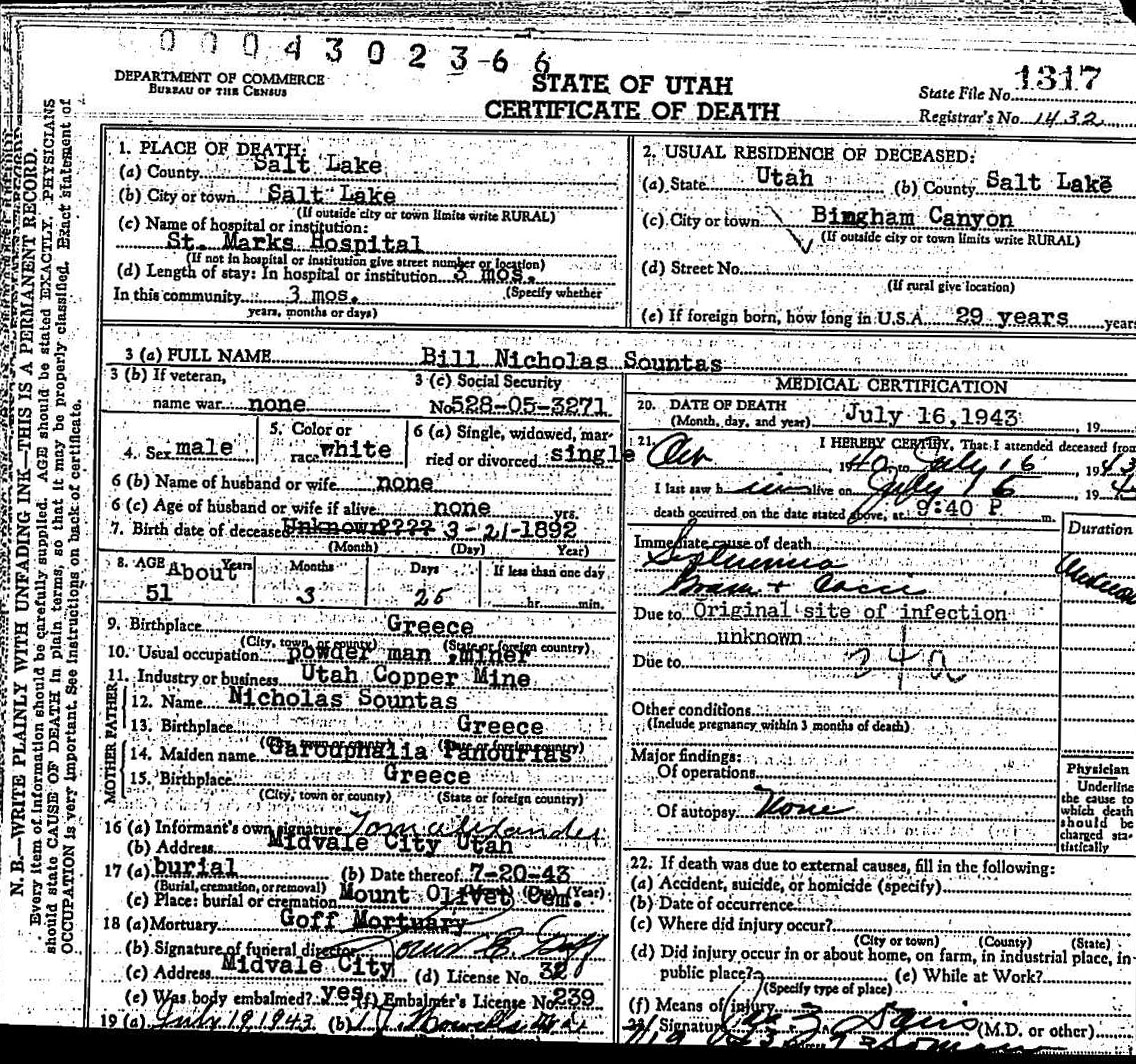 0004302366
DEPARTMENT OF COMMERCE
BUREAU OF THE CENSUS
STATE OF UTAH
CERTIFICATE OF DEATH
State File No. 1317
Registrar's No. 1432
N.B.—WRITE PLAINLY WITH UNFADING INK—THIS IS A PERMANENT RECORD.
Every item of information should be carefully supplied. AGE should be stated EXACTLY. PHYSICIANS
should state CAUSE OF DEATH in plain terms, so that it may be properly classified. Exact statement of
OCCUPATION is very important. See instructions on back of certificate.
1. PLACE OF DEATH:
(a) County Salt Lake
(b) City or town Salt Lake
(If outside city or town limits write RURAL)
(c) Name of hospital or institution:
St. Marks Hospital
(If not in hospital or institution give street number or location)
(d) Length of stay: In hospital or institution 3 mos.
(Specify whether
In this community 3 mos.
years, months or days)
2. USUAL RESIDENCE OF DECEASED:
(a) State Utah (b) County Salt Lake
(c) City or town Bingham Canyon
(If outside city or town limits write RURAL)
(d) Street No.
(If rural give location)
(e) If foreign born, how long in U.S.A. 29 years years
3 (a) FULL NAME Bill Nicholas Sountas
3 (b) If veteran, name war none
3 (c) Social Security No 528-05-3271
4. Sex male
5. Color or race white
6 (a) Single, widowed, married or divorced single
6 (b) Name of husband or wife none
6 (c) Age of husband or wife if alive none yrs.
7. Birth date of deceased Unknown???? 3-21-1892
(Month) (Day) Year)
8. AGE Years Months Days If less than one day
About 51 3 25 hr. min.
9. Birthplace Greece
(City, town, or county) (State or foreign country)
10. Usual occupation powder man, miner
11. Industry or business Utah Copper Mine
FATHER
12. Name Nicholas Sountas
13. Birthplace Greece
(City, town or county) (State or foreign country)
MOTHER
14. Maiden name Garouphalia Panourias
15. Birthplace Greece
(City, town or county) (State or foreign country)
16 (a) Informant's own signature
(b) Address Midvale City Utah
17 (a) burial (b) Date thereof 7-20-43
(Burial, cremation, or removal) (Day) (Year)
(c) Place: burial or cremation Mount Olivet Cem.
18 (a) Mortuary Goff Mortuary
(b) Signature of funeral director
(c) Address Midvale City (d) License No. 32
(e) Was body embalmed? yes (f) Embalmer's License No. 239
19 (a) July 19, 1943 (b)
MEDICAL CERTIFICATION
20. DATE OF DEATH July 16, 1943, 19
(Month, day, and year)
21. I HEREBY CERTIFY, That I attended deceased from
1940, to July 16 1943
I last saw h im alive on July 16 194
death occurred on the date stated above, at 9:40 P m.
Duration
Immediate cause of death
Septicemia
Gram + Cocci
Due to Original site of infection
unknown
Due to
Other conditions
(Include pregnancy within 3 months of death)
Major findings:
Of operations
Of autopsy None
Physician
Underline the cause to which death should be charged statistically
22. If death was due to external causes, fill in the following:
(a) Accident, suicide, or homicide (specify)
(b) Date of occurrence
(c) Where did injury occur?
(City or town) (County) (State)
(d) Did injury occur in or about home, on farm, in industrial place, in
public place? (e) While at Work?
(Specify type of place)
(f) Means of injury
Signature (M.D. or other)